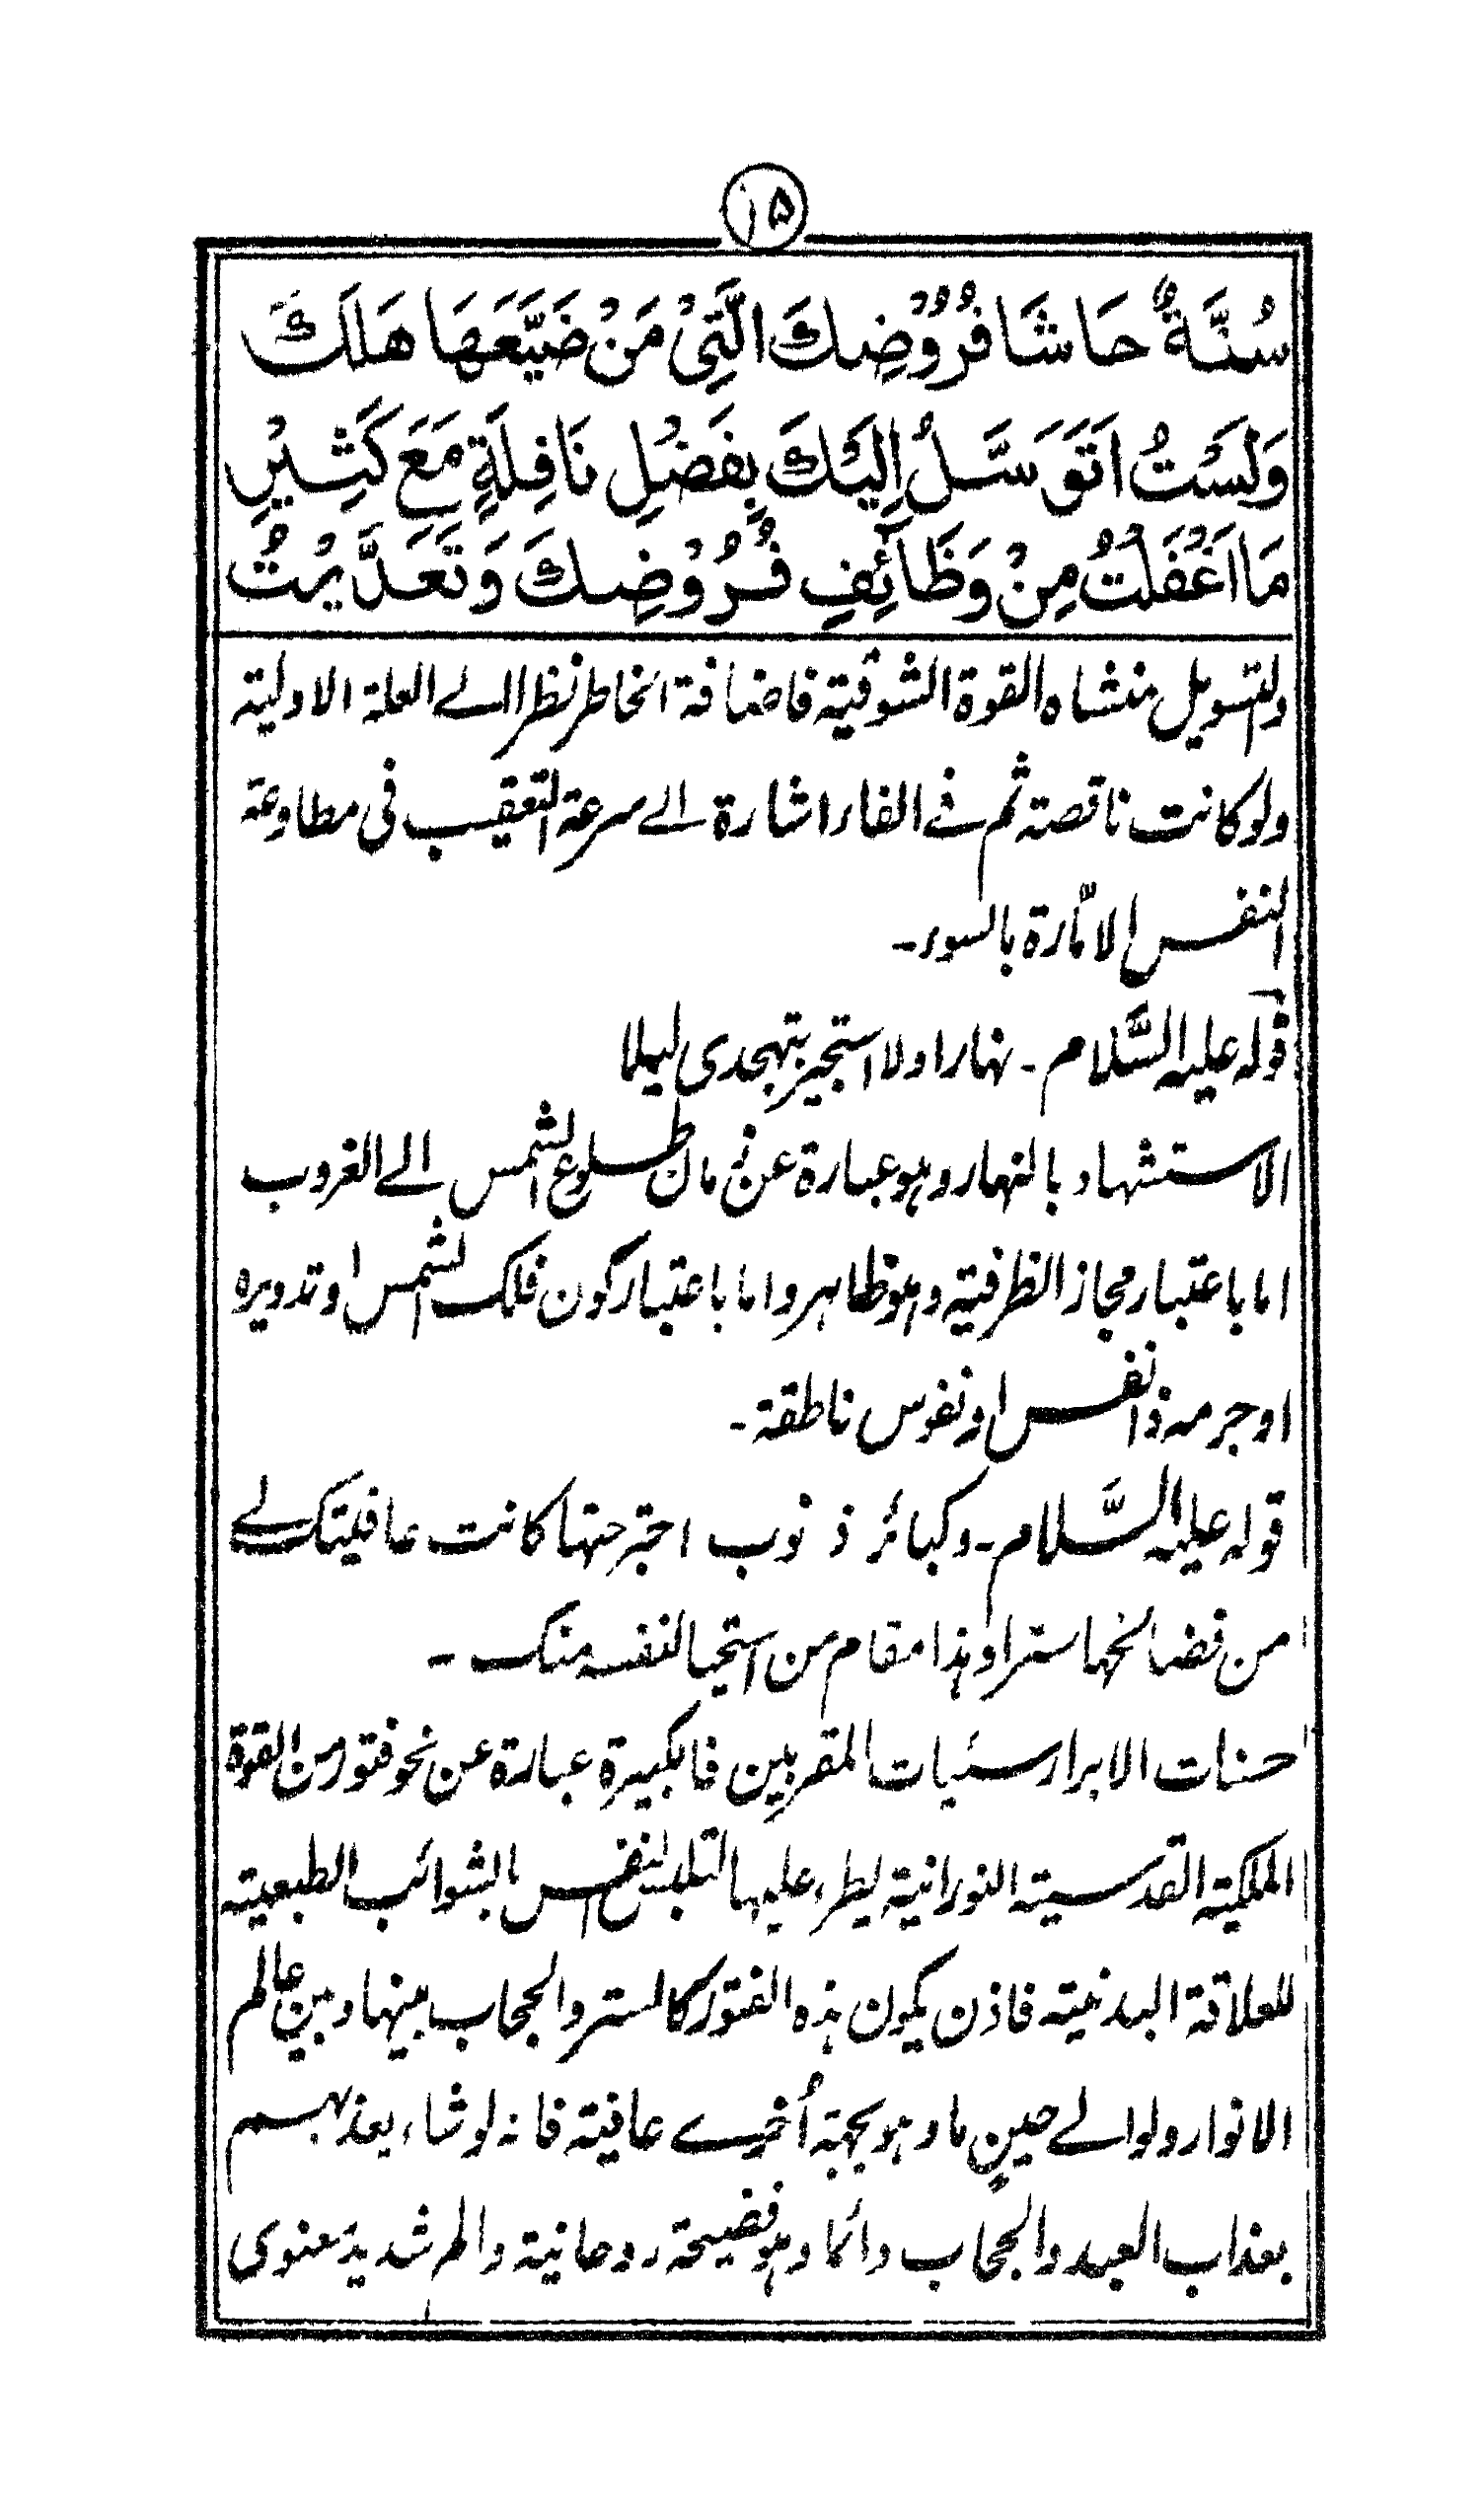 ١٥
سُنَّةٌ حَاشَا فُرُوْضِكَ الَّتِیْ مَنْ ضَیَّعَهَا هَلَكَ
وَلَسْتُ اَتَوَسَّلُ اِلَیْكَ بِفَضْلِ نَافِلَةٍ مَعَ كَثِیْرِ
مَا اَغْفَلْتُ مِنْ وَظَآئِفِ فُرُوْضِكَ وَتَعَدَّیْتُ
والتسویل منشاه القوة الشوقیة فاضافة الخاطر نظرا الے العلة الاولیة
ولو کانت ناقصة ثم فے الفاء اشارة الے سرعة التعقیب فی مطاوعة
النفس الامّارة بالسوء۔
قوله علیه السَّلام ۔ نهارا ولا استجیر بتهجدی لیلا
الاستشهاد بالنهار وهو عبارة عن زمان طلوع الشمس الے الغروب
اما باعتبار مجاز الظرفیة وهو ظاهر واما باعتبار کون فلک الشمس او تدویره
او جرمه ذا نفس او نفوس ناطقة۔
قوله علیه السَّلام ۔ وکبائر ذنوب اجترحتها کانت عافیتک لے
من فضائحها سترا وهذا مقام من استحیا لنفسه منک ۔
حسنات الابرار سئیات المقربین فالکبیرة عبارة عن نحو فتور من القوة
الملکیة القدسیة النورانیة لیطرء علیها لتلبس النفس بالشوائب الطبعیة
للعلاقة البدنیة فاذن یکون هذه الفتور کالستر والحجاب بینها وبین عالم
الانوار ولو الے حینٍ ما وهو بجهة اُخرے عافیة فانه لو شاء یعذبهم
بعذاب البعد والحجاب دائما وهو فضیحة روحانیة والم شدید معنوی